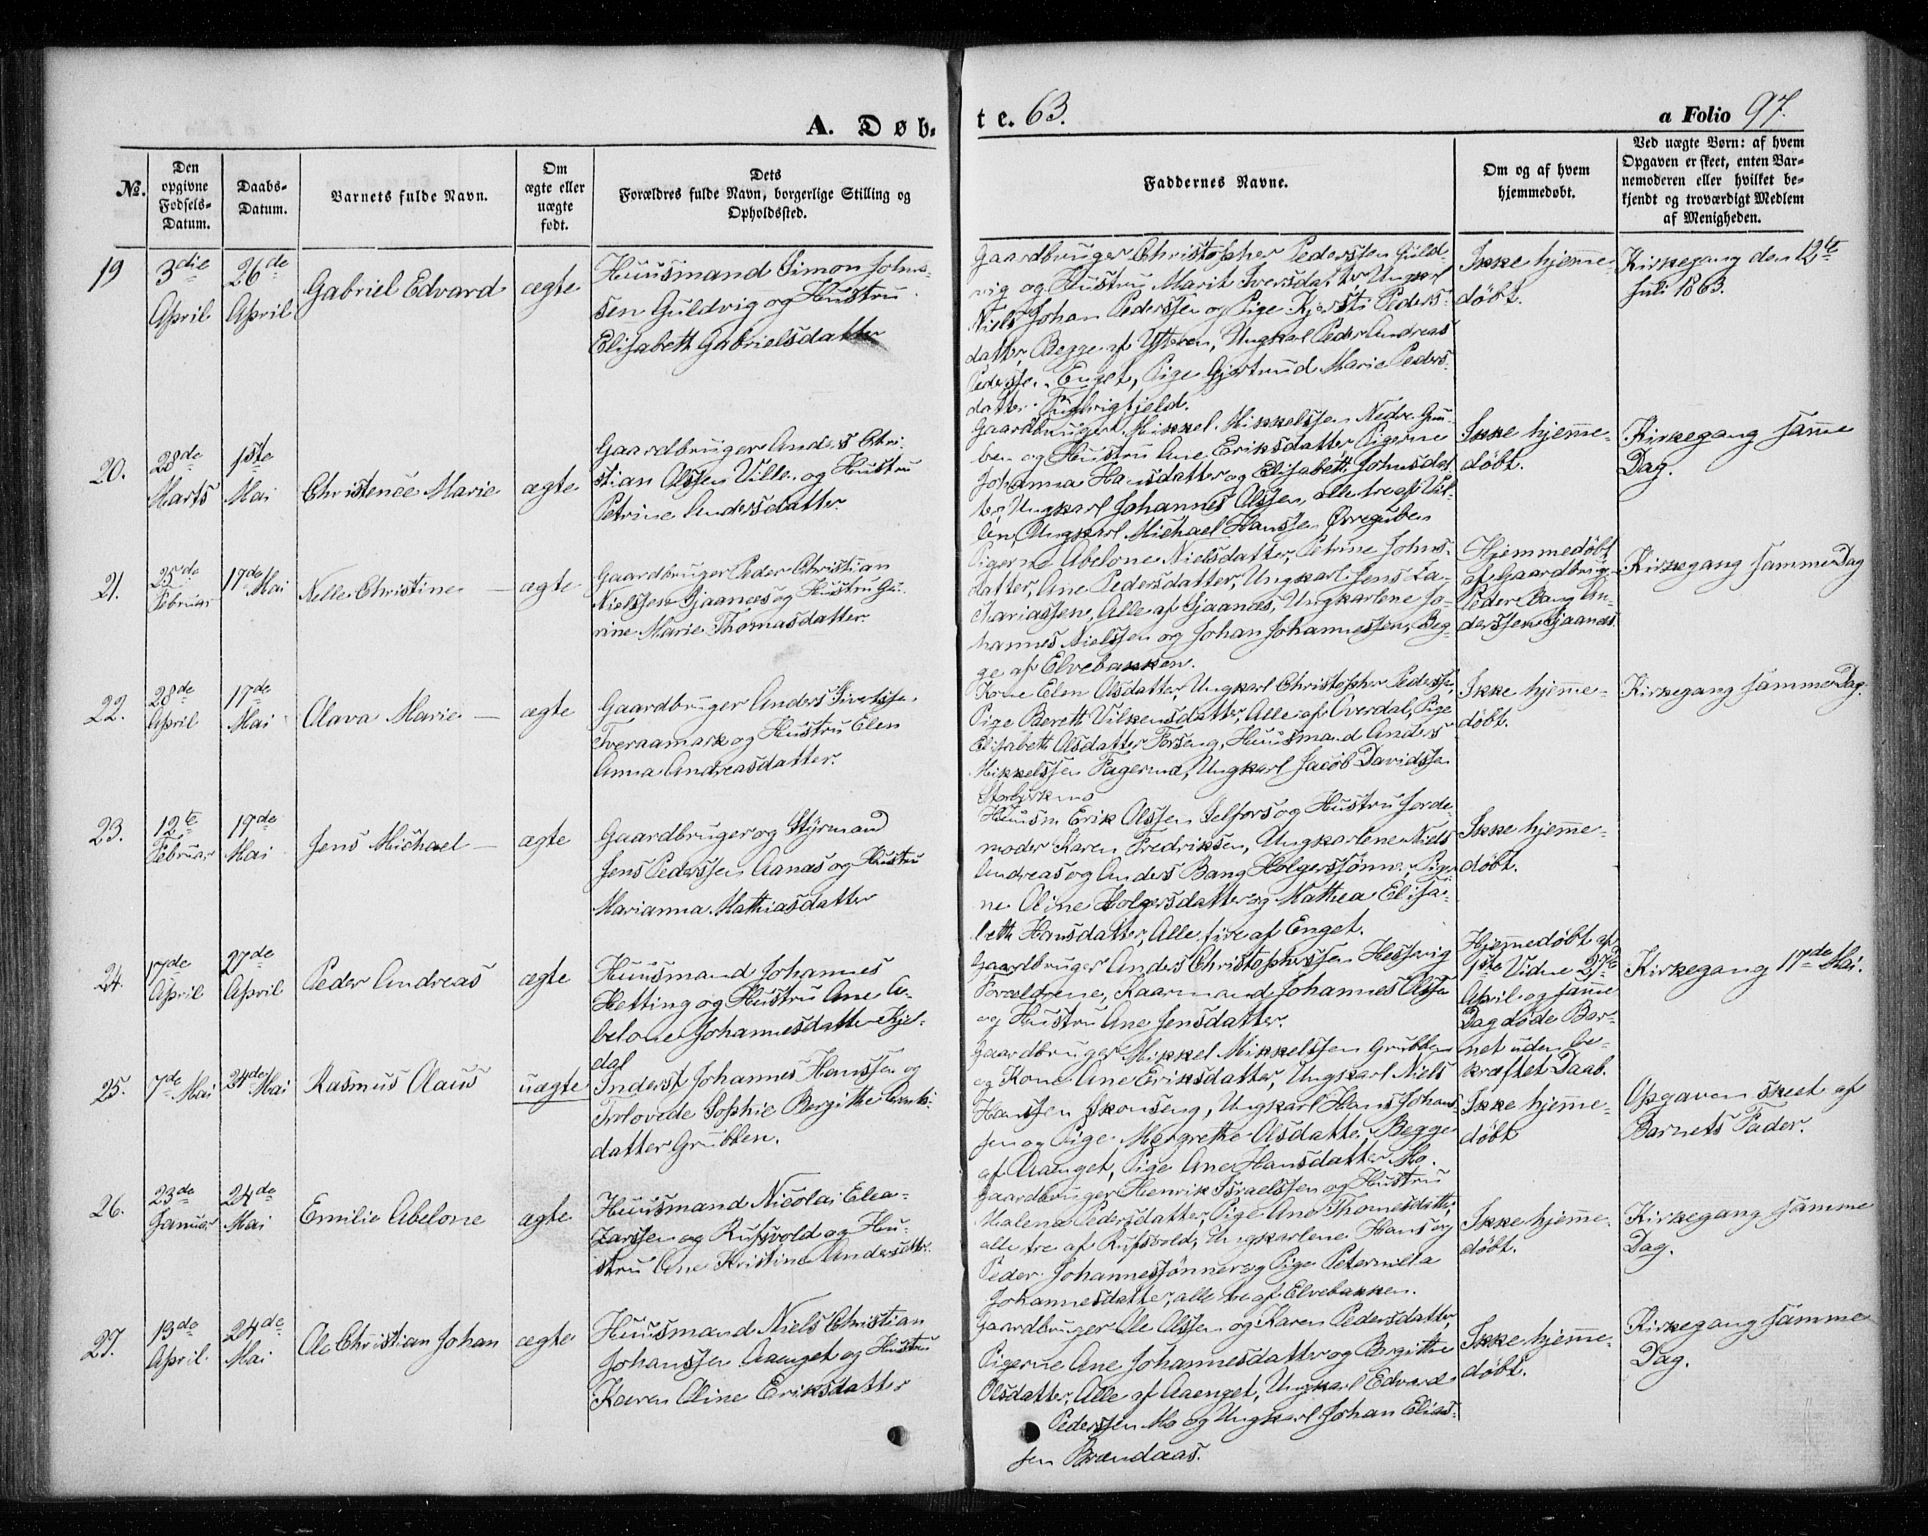 A. Døbte. 63.
a Folio 97.
No.
Den opgivne Fødsels-Datum.
Daabs-Datum.
Barnets fulde Navn.
Om ægte eller uægte født.
Dets Forældres fulde Navn, borgerlige Stilling og Opholdssted.
Faddernes Navne.
Om og af hvem hjemmedøbt.
Ved uægte Børn: af hvem Opgaven er skeet, enten Barnemoderen eller hvilket bekjendt og troværdigt Medlem af Menigheden.
19
3die April
26de April
Gabriel Edvard
ægte
Huusmand Simon Johns-
sen Guldvig og Hustru
Elisabeth Gabrielsdatter
Gaardbruger Christopher Pederssen Guld-
vig og Hustru Marit Iversdatter, Ungkarl
Niels Johan Pederssen og Pige Kjersti Peders-
datter, Begge af Ytteren, Ungkarl Peder Andreas
Pederssen Enget, Pige Gjertrud Marie Peders-
datter
Ikke hjemme-
døbt.
Kirkegang den 12te
Juli 1863.
20.
28de Marts
1ste Mai
Christence Marie
ægte
Gaardbruger Anders Chri-
stian Olssen Villen og Hustru
Petrine Andersdatter.
Gaardbruger Mikkel Mikkelssen Nedre Gru-
ben og Hustru Ane Eriksdatter Pigerne
Johanna Hansdatter og Elisabeth Johnsdat-
ter, Ungkarl Johannes Olssen, alle tre af Vil-
len, Ungkarl Michael Hanssen Øvregruben
Ikke hjemme-
døbt.
Kirkegang samme
Dag.
21.
25de Februar
17de Mai
Nelle Christine
ægte
Gaardbruger Peder Christian
Nielssen Sjaanæs og Hustru Gu-
rine Marie Thomasdatter.
Pigerne Abelone Nielsdatter, Petrine Johns-
datter, Ane Pedersdatter, Ungkarl Jens Za-
chariassen, Alle af Sjaanæs, Ungkarlene Jo-
hannes Nielssen og Johan Johannessen, Beg-
ge af Elvebakken.
Hjemmedøbt
af Gaardbrug.
Peder Bang An-
derssen Sjaanæs.
Kirkegang samme Dag
22.
28de April
17de Mai
Olava Marie
ægte
Gaardbruger Anders Sivertsen
Tveraamark og Hustru Elen
Anna Andreasdatter.
Kone Elen Olsdatter, Ungkarl Christopher Pederssen,
Pige Berett Vilkensdatter, Alle af Overdal, Pige
Elisabeth Olsdatter Forseng, Huusmand Anders
Mikkelssen Fagermo, Ungkarl Jacob Davidssen
Ikke hjemme-
døbt.
Kirkegang samme Dag.
23.
12te Februar
17de Mai
Jens Michael
ægte
Gaardbruger og Styrmand
Jens Pederssen Aanæs og Hustru
Marianna Mathiasdatter
Huusm Erik Olssen Selfors og Hustru Jorde-
moder Karen Fredriksen, Ungkarlene Niels
Andreas og Anders Bang Holgerssønner, Piger-
ne Oline Holgersdatter og Mathea Elisa-
beth Hansdatter, Alle fire af Enget.
Ikke hjemme-
døbt.
24.
17de April
27de April
Peder Andreas
ægte
Huusmand Johannes
Hetting og Hustru Ane A-
belone Johannesdatter Kjel-
dal
Gaardbruger Anders Christophersen Hessevig
Forældrene, Kaarmand Johannes Olssen
og Hustru Ane Jensdatter.
Hjemmedøbt af
1ste Vidne 27de
April og samme
Dag døde Bar-
net uden be-
kræftet Daab.
Kirkegang 17de Mai.
25.
7de Mai
24de Mai
Rasmus Olaus
uægte
Inderst Johannes Hanssen og
Trolovede Sophie Bergitte
datter Grubben.
Gaardbruger Mikkel Mikkelssen Grubben
og Kone Ane Eriksdatter, Ungkarl Niels
Hanssen Skonseng, Ungkarl Hans Johans-
sen og Pige Margrethe Olsdatter, Begge
af Aaenget, Pige Ane Hansdatter Mo.
Ikke hjemme-
døbt
Opgaven skeet af
Barnets Fader.
26.
23de Januar
24de Mai
Emilie Abelone
ægte
Huusmand Nicolai Elea-
zarssen og Rufsvold og Hu-
stru Ane Kristine Andersdtr.
Gaardbruger Henrik Israelssen og Hustru
Malena Pedersdatter, Pige Ane Thomesdatter,
alle tre af Rufsvold, Ungkarlene Hans og
Peder Johannessønner og Pige Peternella
Johannesdatter, alle tre af Elvebakken.
Ikke hjemme-
døbt.
Kirkegang samme
Dag.
27.
13de April
24de Mai
Ole Christian Johan
ægte
Huusmand Niels Christian
Johanssen Aaenget og Hustru
Karen Oline Eriksdatter
Gaardbruger Ole Olssen og Karen Pedersdatter,
Pigerne Ane Johannesdatter og Bergitte
Olsdatter, Alle af Aaenget, Ungkarl Edvard
Pederssen Mo og Ungkarl Johan Elias-
sen Brændaas.
Ikke hjemme-
døbt.
Kirkegang samme
Dag.